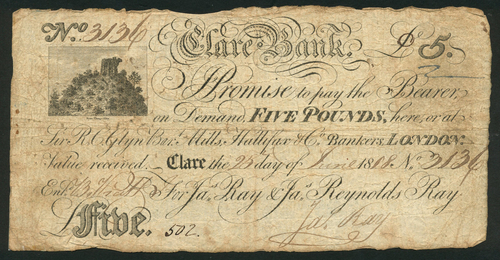 No. 3136 Clare Bank. £5.
I Promise to pay the Bearer,
on Demand, FIVE POUNDS, here, or at
Sir R.C. Glyn Bart. Mills, Hallifax & Co. Bankers, LONDON.
Value received. Clare the 23 day of 1818. No. 3136
Entd. For Jas. Ray & Jas. Reynolds Ray
£Five. 502. Jas. Ray